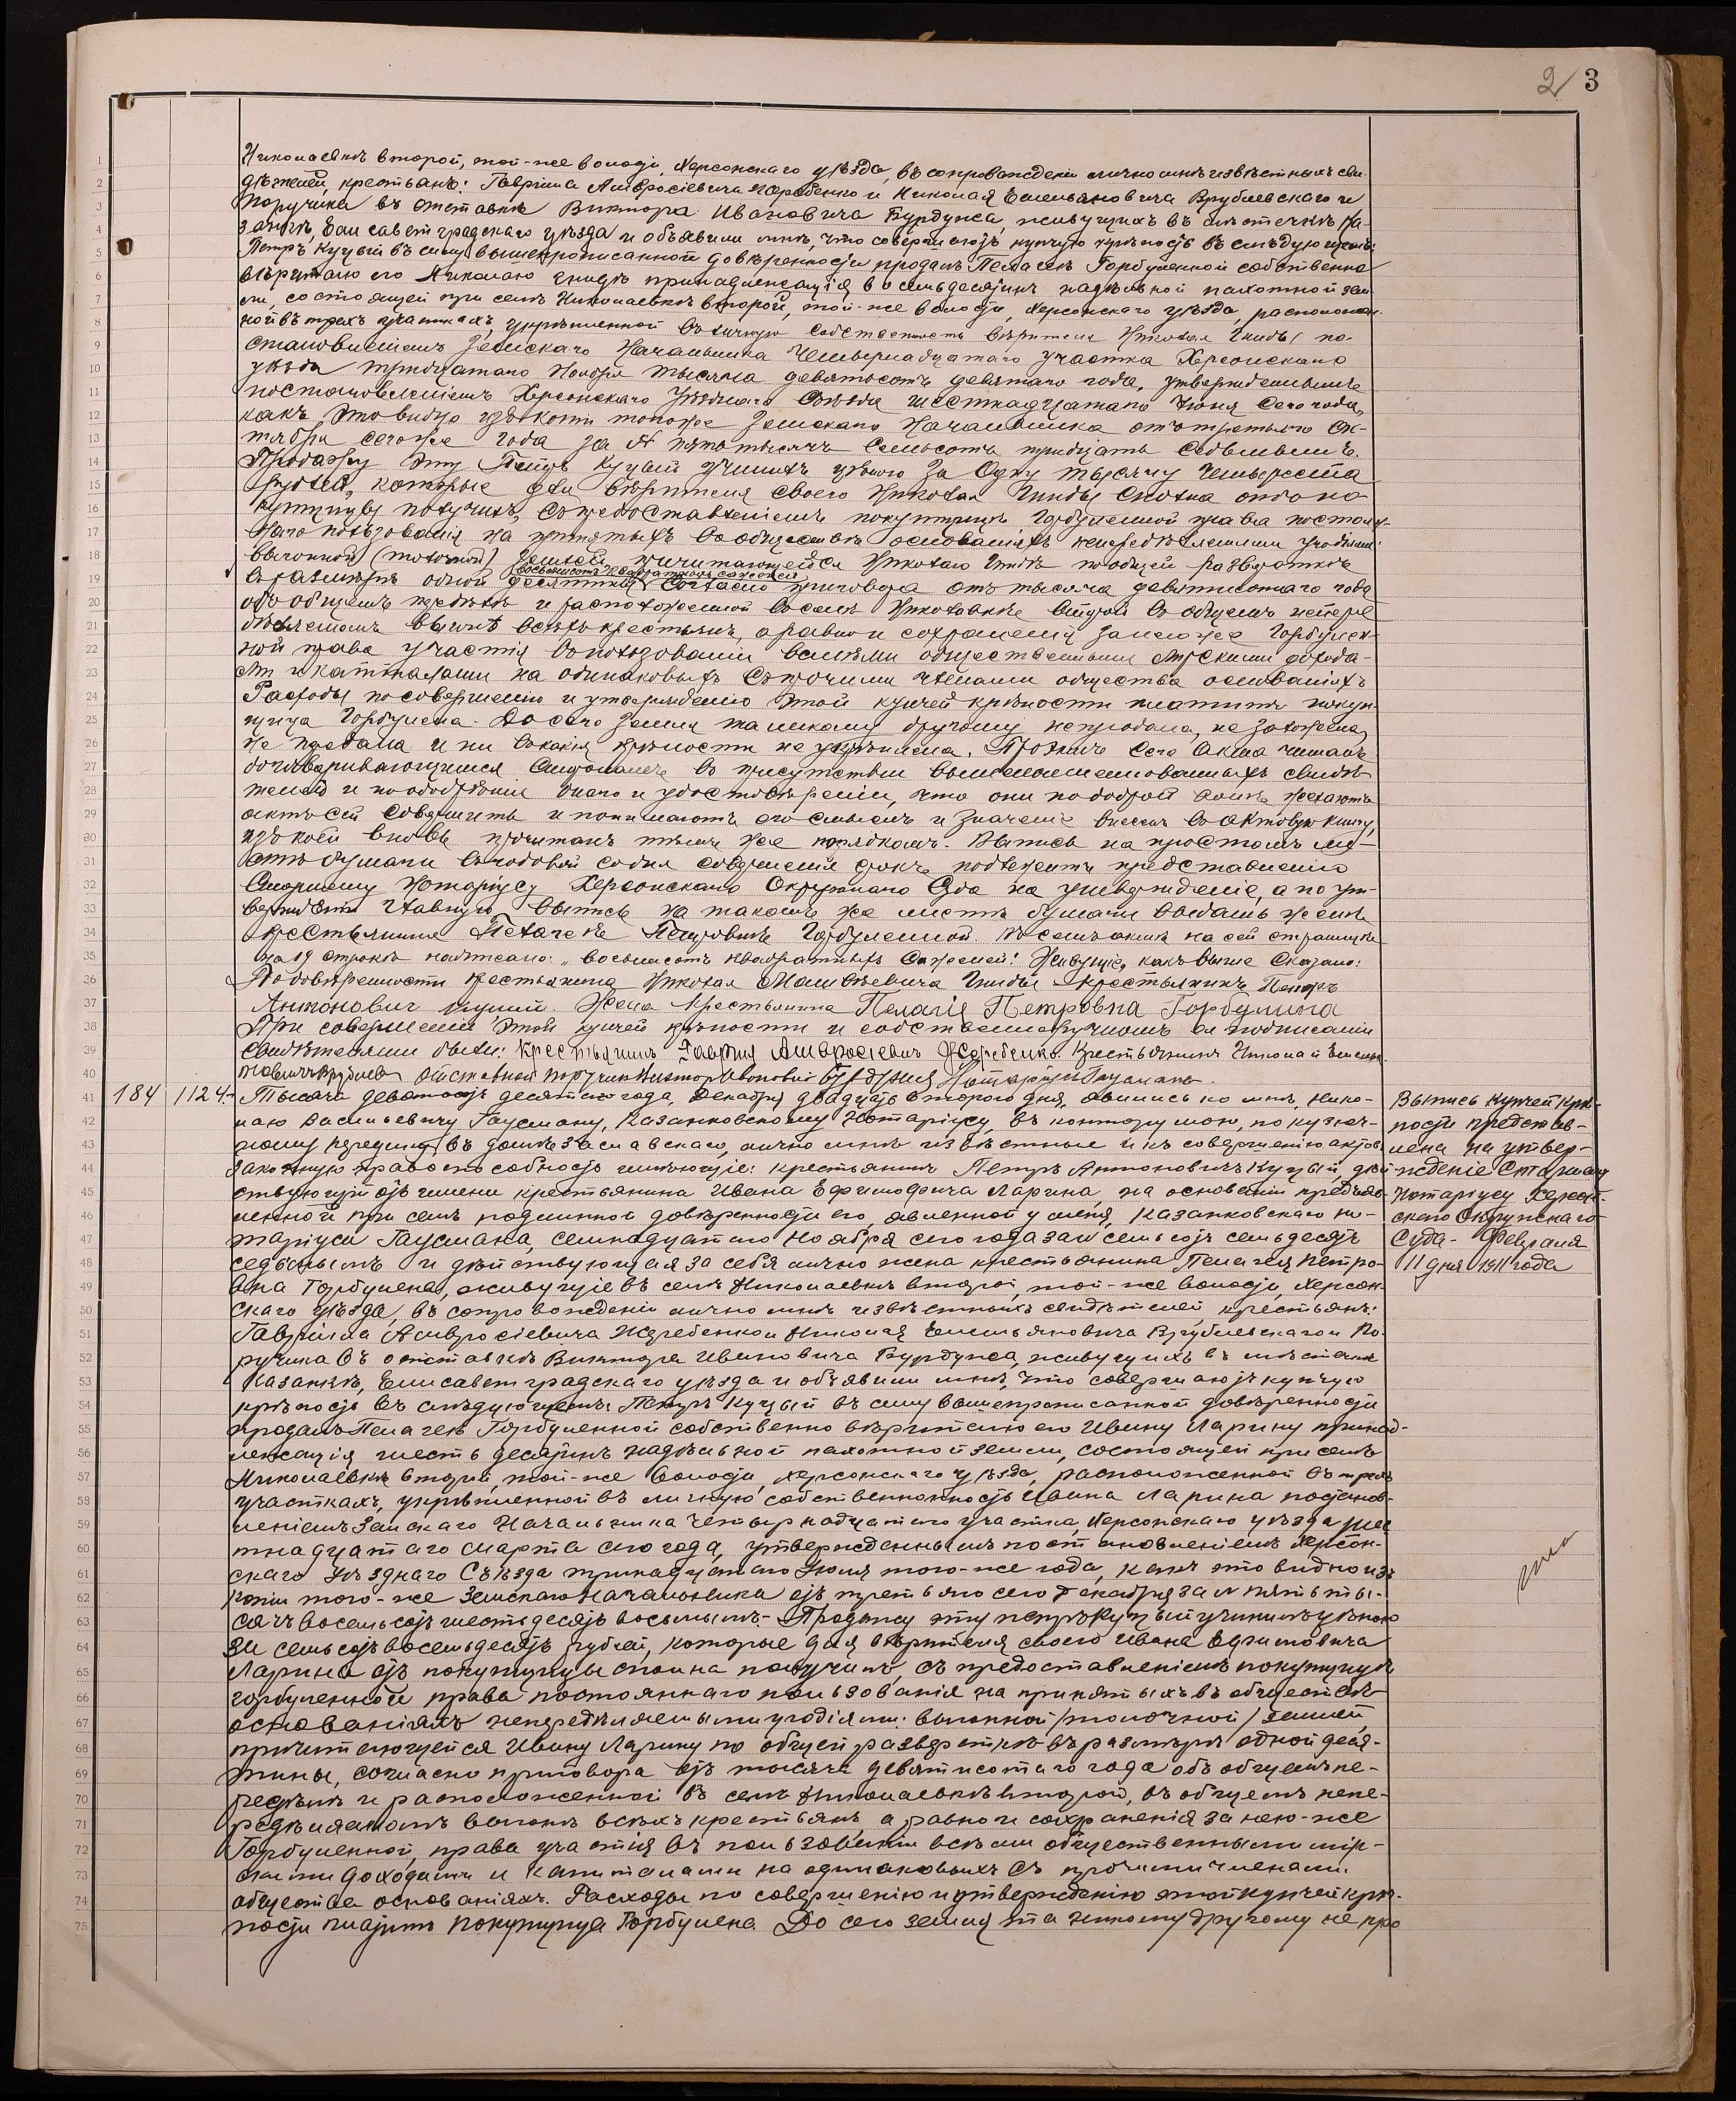 2 3
1 Николаевкѣ второй, той-же волости, Херсонскаго уѣзда, въ сопровожденіи лично мнѣ извѣстныхъ сви-
2 дѣтелей, крестьянъ: Гавріила Амвросіевича Жеребенко и Николая Емельяновича Врублевскаго и
3 Поручика въ отставкѣ Виктора Ивановича Бурдуна, живущихъ въ мѣстечкѣ Ка-
4 занкѣ, Елисаветградскаго уѣзда и объявили мнѣ, что совершаютъ купчую крѣпость въ слѣдующемъ:
5 Петръ Куцый въ силу вышепрописанной довѣренности продалъ Пелагеѣ Горбуленой собственно
6 вѣрителю его Николаю Гнидѣ принадлежащія восемь десятинъ надѣльной пахотной зем-
7 ли, состоящей при селѣ Николаевкѣ второй, той-же волости, Херсонскаго уѣзда, расположен-
8 ной въ трехъ участкахъ, укрѣпленной въ личную собственность вѣрителя Николая Гниды по-
9 становленіемъ Земскаго Начальника Четырнадцатаго участка Херсонскаго
10 уѣзда тридцатаго Ноября тысяча девятьсотъ девятаго года, утвержденнымъ
11 постановленіемъ Херсонскаго Уѣзднаго Съѣзда шестнадцатаго Іюня сего года,
12 какъ это видно изъ копіи того же Земскаго Начальника отъ третьяго Ок-
13 тября сего же года за № пять тысячъ семьсотъ тридцать седьмымъ.
14 Продажу эту Петръ Куцый учинилъ цѣною за Одну тысячу четыреста
15 рублей, которые для вѣрителя своего Николая Гниды сполна отъ по-
16 купщицы получилъ, съ предоставленіемъ покупщицѣ Горбуленной права постоян-
17 наго пользованія на принятыхъ въ обществѣ основаніяхъ непередѣляемыми угодьями:
18 выгонной (толочной) землей причитающейся Николаю Гнидѣ по общей разверсткѣ
восемьсотъ квадратныхъ саженей
19 въ размѣрѣ одной десятины, согласно приговора отъ тысяча девятисотаго года
20 объ общемъ передѣлѣ и расположенной въ селѣ Николаевкѣ второй въ общемъ непере-
21 дѣляемомъ выгонѣ всѣхъ крестьянъ, а равно и сохраненія за нею же Горбулен-
22 ной права участія въ пользованіи всѣми общественными мірскими дохода-
23 ми и капиталами на одинаковыхъ съ прочими членами общества основаніяхъ
24 Расходы по совершенію и утвержденію этой купчей крѣпости платитъ покуп-
25 щица Горбулена. До сего земля та никому другому не продана, не заложена,
26 не предана и ни въ какія крѣпости не укрѣплена. Проэктъ сего акта читанъ
27 договаривающимся сторонамъ въ присутствіи вышепоименованныхъ свидѣ-
28 телей и по одобреніи онаго и удостовѣреніи, что они по доброй волѣ желаютъ
29 актъ сей совершить и понимаютъ его смыслъ и значеніе внесенъ въ актовую книгу,
30 изъ коей вновь прочитанъ тѣмъ же порядкомъ. Выпись на простомъ ли-
31 стѣ бумаги въ годовой со дня совершенія срокъ подлежитъ представленію
32 Старшему Нотаріусу Херсонскаго Окружнаго Суда на утвержденіе, а по ут-
33 вержденіи главную выпись на такомъ же листѣ бумаги выдать женѣ
34 крестьянина Пелагеѣ Петровнѣ Горбуленной. Въ семъ актѣ на сей страницѣ
35 на 19 строкѣ надписано: „восемьсотъ квадратныхъ саженей". Живущіе, какъ выше сказано:
36 По довѣренности крестьянина Николая Матвѣевича Гниды крестьянинъ Петръ
37 Антоновичъ Куцый. Жена крестьянина Пелагія Петровна Горбулина
38 При совершеніи этой купчей крѣпости и собственноручномъ ея подписаніи
39 свидѣтелями были: Крестьянинъ Гавріил Амвросіевич Жеребенко. Крестьянинъ Николай Емелья-
40 новичъ Врублев отставной поручикъ Викторъ Ивановичъ Бурдунъ Нотаріусъ Гаусманъ.
41 184 1124.- Тысяча девятьсотъ десятаго года, Декабря двадцать второго дня, явились ко мнѣ, Нико-
42 лаю Васильевичу Гаусману, Казанковскому Нотаріусу, въ контору мою, по кузнеч-
43 ному переулку въ домѣ Заславскаго, лично мнѣ извѣстные и къ совершенію актовъ
44 законную правоспособность имѣющіе: крестьянинъ Петръ Антоновичъ Куцый, дѣй-
45 ствующій отъ имени крестьянина Ивана Ефимовича Ларина, на основаніи предъяв-
46 ленной при семъ подлинной довѣренности его, явленной у меня, Казанковскаго но-
47 таріуса Гаусмана, семнадцатаго Ноября сего года за № семьсотъ семьдесятъ
48 седьмымъ и дѣйствующая за себя лично жена крестьянина Пелагея Петро-
49 вна Горбулена, живущіе въ селѣ Николаевкѣ второй, той-же волости, Херсон-
50 скаго уѣзда, въ сопровожденіи лично мнѣ извѣстныхъ свидѣтелей, крестьянъ:
51 Гавріила Амвросіевича Жеребенко и Николая Емельяновича Врублевскаго и По-
52 ручика въ отставкѣ Виктора Ивановича Бурдуна, живущихъ въ мѣстечкѣ
53 Казанкѣ, Елисаветградскаго уѣзда и объявили мнѣ, что совершаютъ купчую
54 крѣпость въ слѣдующемъ: Петръ Куцый въ силу вышепрописанной довѣренности
55 продалъ Пелагеѣ Горбуленной собственно вѣрителю его Ивану Ларину принад-
56 лежащія шесть десятинъ надѣльной пахотной земли, состоящей при селѣ
57 Николаевкѣ второй, той-же волости, Херсонскаго уѣзда, расположенной въ трехъ
58 участкахъ, укрѣпленной въ личную собственность Ивана Ларина постанов-
59 леніемъ Земскаго Начальника Четырнадцатаго участка, Херсонскаго уѣзда шес-
60 тнадцатаго Марта сего года, утвержденнымъ постановленіемъ Херсон-
61 скаго Уѣзднаго Съѣзда тринадцатаго Іюля того-же года, какъ это видно изъ
62 копіи того-же Земскаго Начальника отъ третьяго сего Декабря за № пять ты-
63 сячъ восемьсотъ шестьдесятъ восьмымъ. Продажу эту Петръ Куцый учинилъ цѣною
64 за семьсотъ восемьдесятъ рублей, которые для вѣрителя своего Ивана Ефимовича
65 Ларина отъ покупщицы сполна получилъ, съ предоставленіемъ покупщицѣ
66 Горбуленной права постояннаго пользованія на принятыхъ въ обществѣ
67 основаніяхъ непередѣляемыми угодіями: выгонной /толочной/ землей,
68 причитающейся Ивану Ларину по общей разверсткѣ въ размѣрѣ одной деся-
69 тины, согласно приговора отъ тысяча девятисотаго года объ общемъ пе-
70 редѣлѣ и расположенной въ селѣ Николаевкѣ второй, въ общемъ непе-
71 редѣляемомъ выгонѣ всѣхъ крестьянъ, а равно и сохраненія за нею-же
72 Горбуленной, права участія въ пользованіи всѣми общественными мір-
73 скими доходами и капиталами на одинаковыхъ съ прочими членами
74 общества основаніяхъ. Расходы по совершенію и утвержденію этой купчей крѣ-
75 пости платитъ покупщица Горбулена. До сего земля та никому другому не про
Выпись купчей крѣ-
пости представ-
лена на утвер-
жденіе Старшему
Нотаріусу Херсон-
скаго Окружнаго
Суда - Февраля
11 дня 1911 года